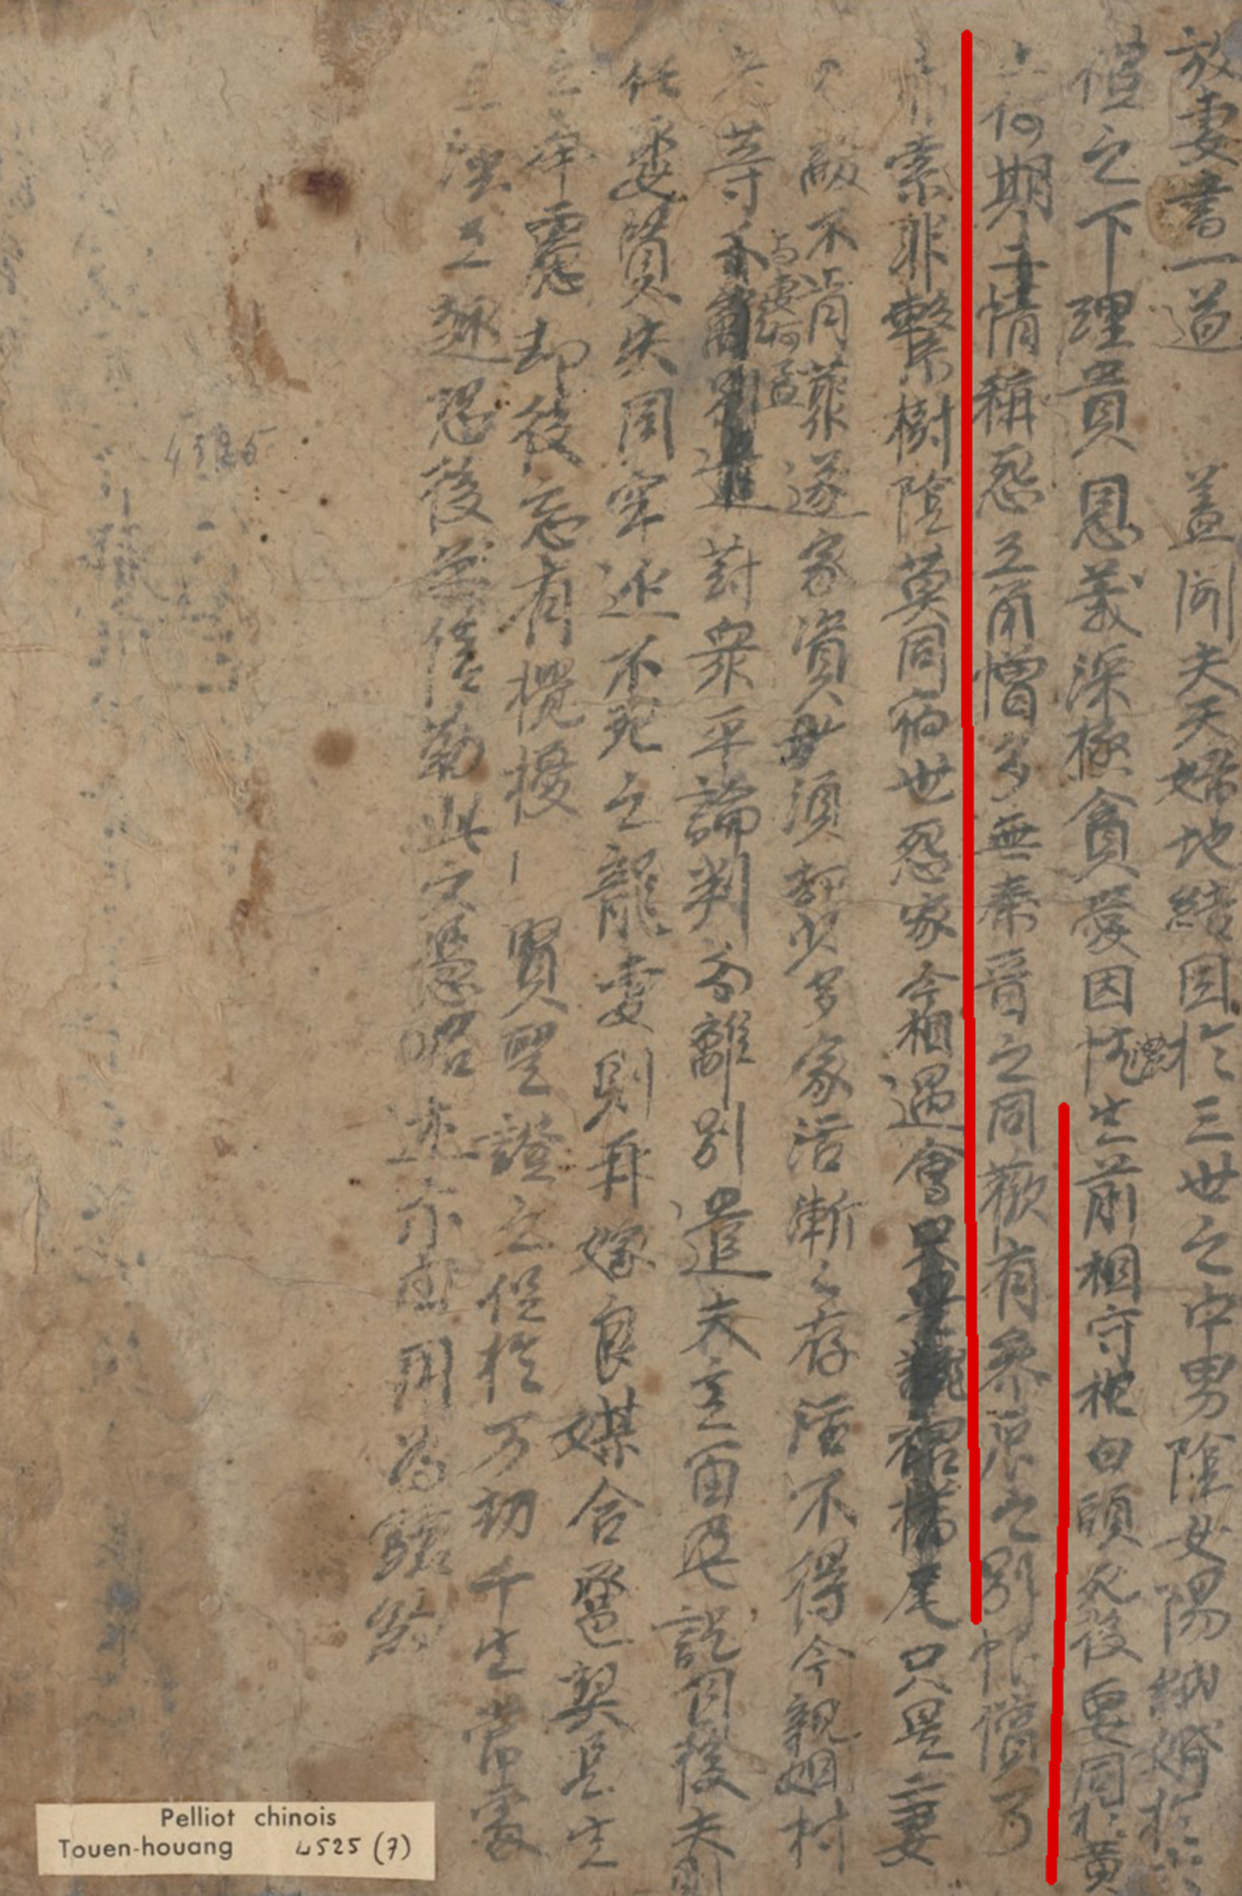 放妻書一道 蓋聞夫天婦地結因於三世之中男陰女陽納婚於六
償之下理貴恩義深極貪愛因性濃生前相守抱白頭死後要同於黃
土何期二情稱怨互角憎多無秦晉之同歡有參辰之別恨償了
索非繫樹陰莫同宿世怨家今相遇會只是二妻
敵不肯藂遂家資須却少多家活漸々存活不得今親姻村
老等与妻阿孟對衆平論判分離別遣夫主留盈訖自後夫則
任委賢央同牢延不死之龍妻則再嫁良媒合卺契長生
之奉慮却後忘有攪擾賢聖證之但於万劫千生常處
之趣恐後無信勒此文憑略述尓由用為驗約
4525
Pelliot chinois
Touen-houang 4525 (7)